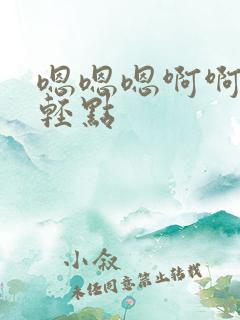 嗯嗯嗯啊啊
轻點
小叙
未经同意禁止转载